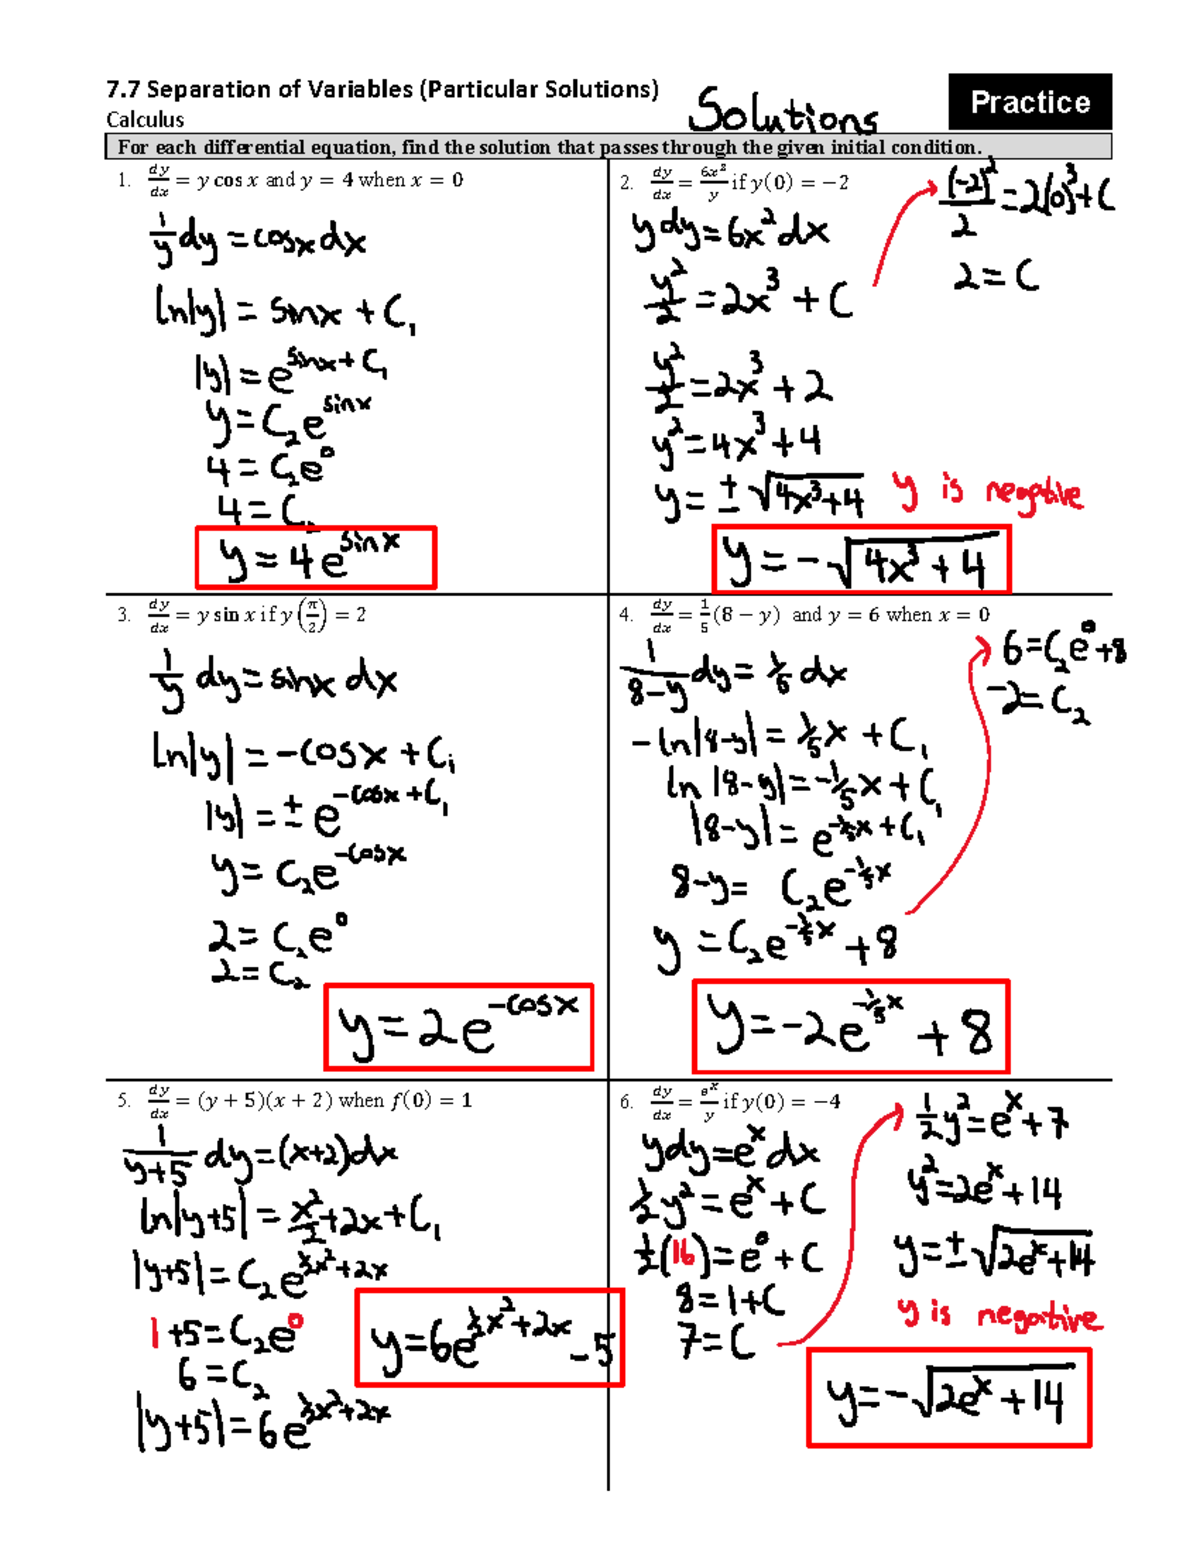 7.7 Separation of Variables (Particular Solutions)
Calculus
Solutions
Practice
For each differential equation, find the solution that passes through the given initial condition.
1. dy/dx = y cos x and y = 4 when x = 0
1/y dy = cosx dx
ln|y| = sinx + C₁
|y| = e^(sinx + C₁)
y = C₂e^(sinx)
4 = C₂e⁰
4 = C₂
y = 4e^(sinx)
2. dy/dx = 6x²/y if y(0) = −2
y dy = 6x² dx
y²/2 = 2x³ + C
(-2)²/2 = 2(0)³ + C
2 = C
y²/2 = 2x³ + 2
y² = 4x³ + 4
y = ± √(4x³+4) y is negative
y = -√(4x³ + 4)
3. dy/dx = y sin x if y(π/2) = 2
1/y dy = sinx dx
ln|y| = -cosx + C₁
|y| = ± e^(-cosx + C₁)
y = C₂e^(-cosx)
2 = C₂e⁰
2 = C₂
y = 2e^(-cosx)
4. dy/dx = 1/5 (8 − y) and y = 6 when x = 0
1/(8-y) dy = 1/5 dx
-ln|8-y| = 1/5 x + C₁
ln|8-y| = -1/5 x + C₁
|8-y| = e^(-1/5 x + C₁)
8-y = C₂e^(-1/5 x)
y = C₂e^(-1/5 x) + 8
6 = C₂e⁰ + 8
-2 = C₂
y = -2e^(-1/5 x) + 8
5. dy/dx = (y + 5)(x + 2) when f(0) = 1
1/(y+5) dy = (x+2)dx
ln|y+5| = x²/2 + 2x + C₁
|y+5| = C₂e^(1/2 x² + 2x)
1+5 = C₂e⁰
6 = C₂
|y+5| = 6e^(1/2 x² + 2x)
y = 6e^(1/2 x² + 2x) - 5
6. dy/dx = eˣ/y if y(0) = −4
y dy = eˣ dx
1/2 y² = eˣ + C
1/2 (16) = e⁰ + C
8 = 1 + C
7 = C
1/2 y² = eˣ + 7
y² = 2eˣ + 14
y = ± √(2eˣ + 14)
y is negative
y = -√(2eˣ + 14)